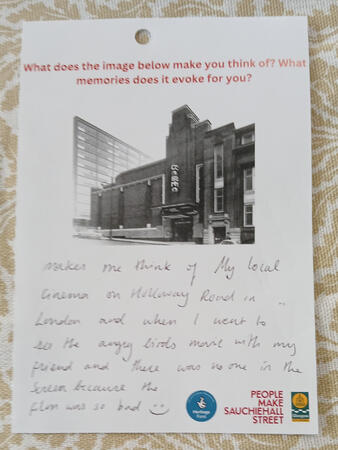 What does the image below make you think of? What
memories does it evoke for you?
makes me think of My local
cinema on Holloway Road in
London and when I went to
see the angry birds movie with my
friend and there was no one in the
Screen because the
film was so bad
Heritage
Fund
PEOPLE
MAKE
SAUCHIEHALL
STREET